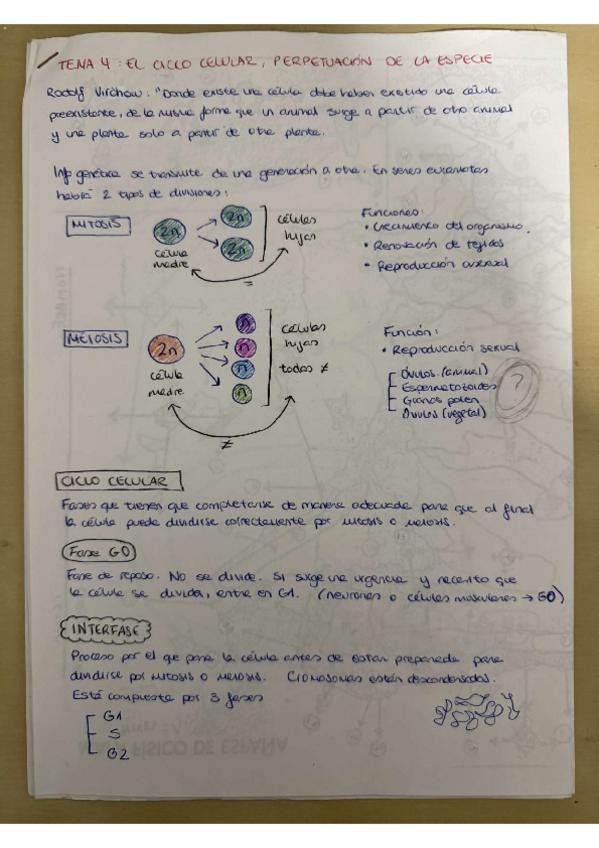 TEMA 4: EL CICLO CELULAR, PERPETUACIÓN DE LA ESPECIE
Rodolf Virchow: "Donde existe una célula debe haber existido una célula
preexistente, de la misma forma que un animal surge a partir de otro animal
y una planta solo a partir de otra planta.
Info genética se transmite de una generación a otra. En seres eucariotas
habrá 2 tipos de divisiones:
MITOSIS
2n
célula madre
2n
2n
células hijas
=
Funciones:
• Crecimiento del organismo.
• Renovación de tejidos
• Reproducción asexual
MEIOSIS
2n
célula madre
n
n
n
n
células hijas
todas ≠
≠
Función:
• Reproducción sexual
Óvulos (animal)
Espermatozoides
Granos polen
Óvulos (vegetal)
?
CICLO CELULAR
Fases que tienen que completarse de manera adecuada para que al final
la célula pueda dividirse correctamente por mitosis o meiosis.
Fase G0
Fase de reposo. No se divide. Si surge una urgencia y necesito que
la célula se divida, entra en G1. (neuronas o células musculares → G0)
INTERFASE
Proceso por el que pasa la célula antes de estar preparada para
dividirse por mitosis o meiosis. Cromosomas están descondensados.
Está compuesta por 3 fases
G1
S
G2
FÍSICO DE ESPAÑA